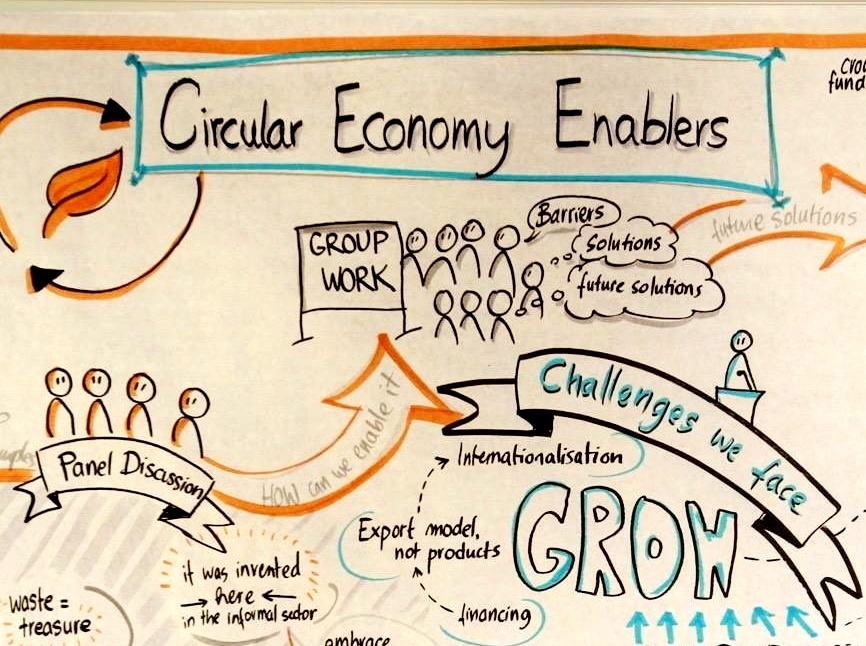 Circular Economy Enablers
GROUP
WORK
Barriers
Solutions
future solutions
future solutions
Panel Discussion
How can we enable it
Challenges we face
Internationalisation
Export model,
not products
financing
GROW
it was invented
here
in the informal sector
waste =
treasure
embrace